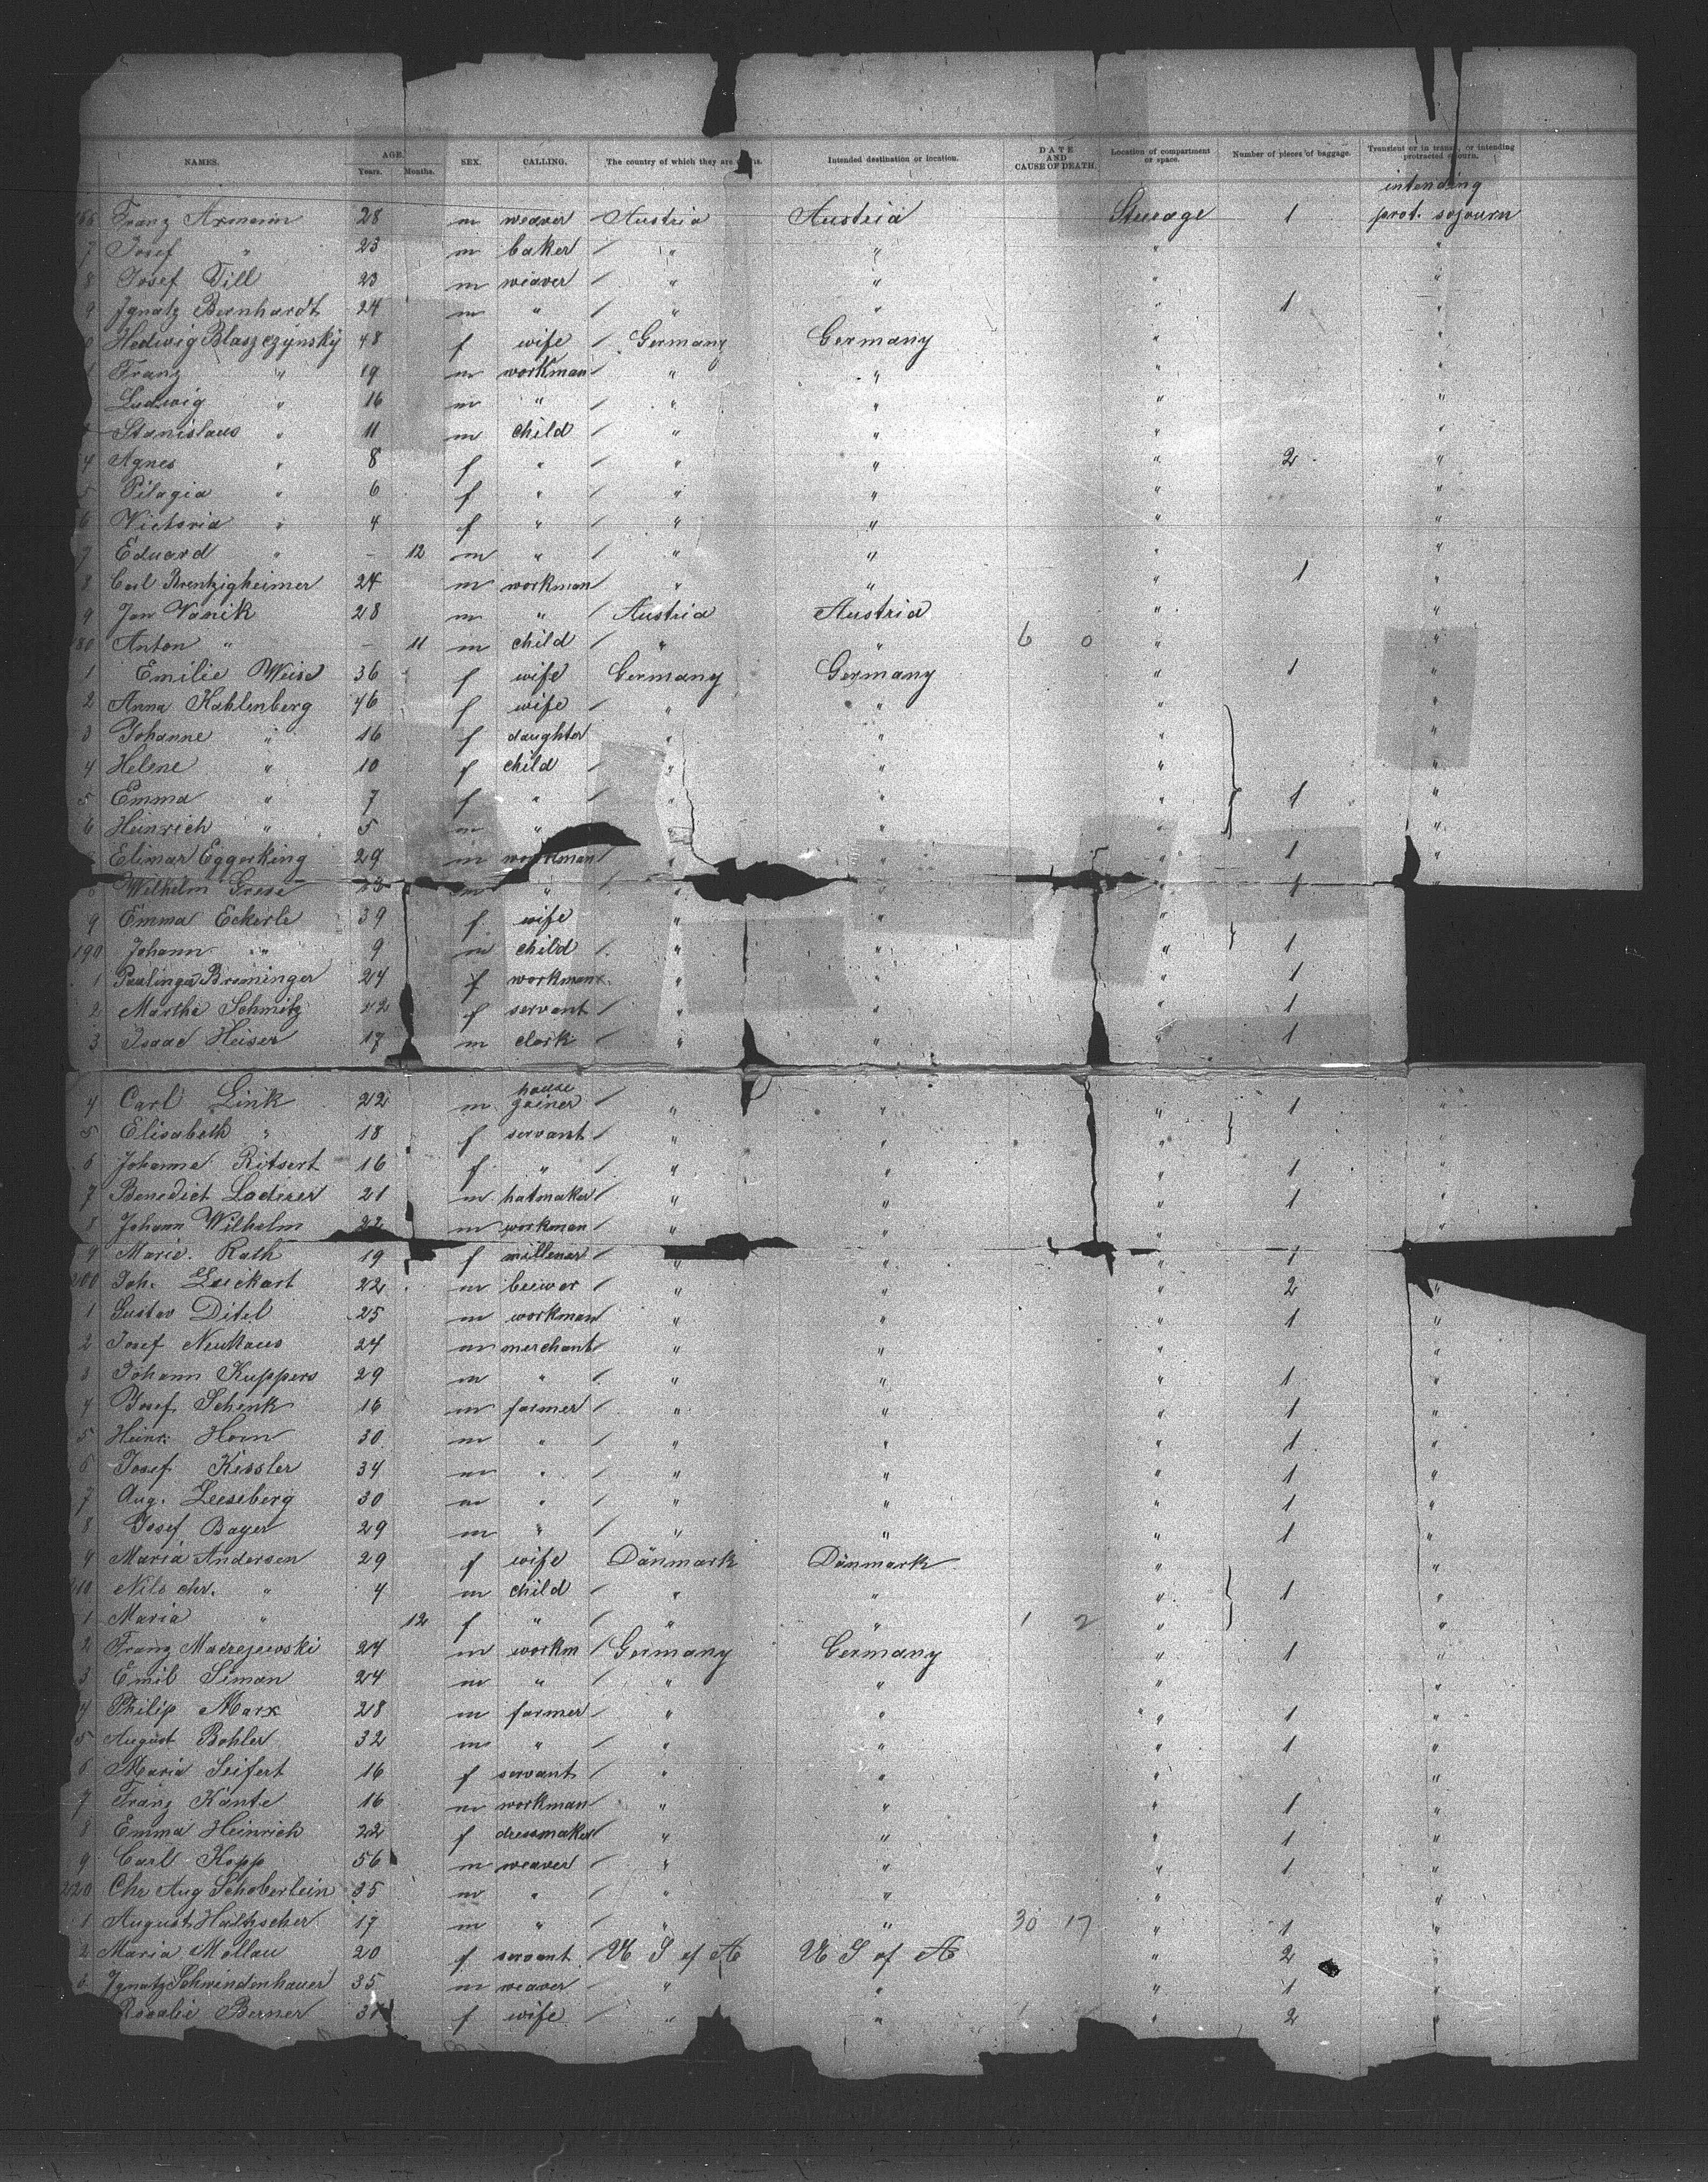 NAMES. AGE. Years. Months. SEX. CALLING. The country of which they are Intended destination or location. DATE AND CAUSE OF DEATH. Location of compartment or space. Number of pieces of baggage. Transient or in transit, or intending protracted sojourn.
intending
Franz 28 m weaver Austria Austria Steerage 1 prot. sojourn
7 Josef " 23 m baker / " " " "
8 Josef Till 23 m weaver / " " " "
9 Ignatz Bernhardt 24 m " / " " " 1 "
Hedwig Blaszczynsky 48 f wife / Germany Germany " "
1 Franz " 19 m workman / " " " "
Ludwig " 16 m " / " " " "
Stanislaus " 11 m child / " " " "
4 Agnes " 8 f " / " " " 2 "
5 Pilagia " 6 f " / " " " "
6 Victoria " 4 f " / " " " "
7 Eduard " - 12 m " / " " " "
8 Carl Brentzigheimer 24 m workman / " " " 1 "
9 Jan Vanik 28 m " / Austria Austria " "
80 Anton " - 11 m child / " " 6 0 " "
1 Emilie Weise 36 f wife / Germany Germany " 1 "
2 Anna Kahlenberg 46 f wife / " " " "
3 Johanne " 16 f daughter " " " "
4 Helene " 10 f child / " " " "
5 Emma " 7 f " / " " " 1 "
6 Heinrich " 5 m " " " " "
Elimar Eggerking 29 m workman / " " " 1 "
8 Wilhelm Grese 23 m " / " " 1 "
9 Emma Eckerle 39 f wife " " "
190 Johann " 9 m child / " " " 1
1 Paulinga Breminger 24 f workman " " " 1
2 Martha Schmitz 42 f servant / " " " 1
3 Isaac Heiser 17 m clerk / " " 1
house
4 Carl Link 22 m / " " " 1 "
5 Elisabeth " 18 f servant / " " "
6 Johanna Ritsert 16 f " / " " " 1 "
7 Benedict Laderer 21 m hatmaker / " " " 1 "
8 Johann Wilhelm 22 m workman / " " " "
9 Marie Rath 19 f millener / " " " 1
200 Joh. Luickart 22 m / " " " 2 "
1 Gustav Ditel 25 m workman / " " " 1 "
2 Josef Neuhaus 24 m merchant / " " " "
3 Johann Kuppers 29 m " / " " " 1 "
4 Josef Schenk 16 m farmer / " " " 1 "
5 Heinr. Horn 30 m " / " " " 1 "
6 Josef Kissler 34 m " / " " " 1 "
7 Aug. Leeseberg 30 m " / " " " 1 "
8 Josef Bayer 29 m " / " " " 1 "
9 Maria Andersen 29 f wife Dänmark Dänmark " "
210 Nils chr. " 4 m child / " " " 1 "
1 Maria " 12 f " / " " 1 2 " "
2 Franz Macrejewski 24 m workm / Germany Germany " 1 "
3 Emil Siman 24 m " / " " " "
4 Philip Marx 28 m farmer / " " " 1 "
5 August Bohler 32 m " / " " " 1 "
6 Maria Seifert 16 f servant / " " " "
7 Franz Kante 16 m workman / " " " 1 "
8 Emma Heinrich 22 f dressmaker / " " " 1 "
9 Carl Kopp 56 m weaver / " " " 1 "
220 Chr Aug Schoberlein 35 m " / " " " "
1 August Haltzscher 17 m " / " " 30 17 " 1 "
2 Maria Mollau 20 f servant U S of A U S of A " 2 "
3 Ignatz Schwindenhauer 35 m weaver / " " " 1 "
Rosalie Berner f wife / " " " 2 "